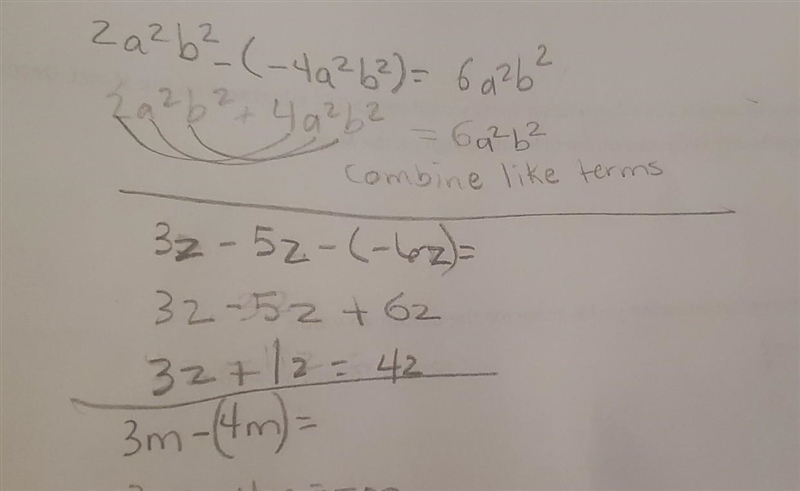 2a²b² - (-4a²b²) = 6a²b²
2a²b² + 4a²b² = 6a²b²
combine like terms
3z - 5z - (-6z) =
3z - 5z + 6z
3z + 1z = 4z
3m - (4m) =